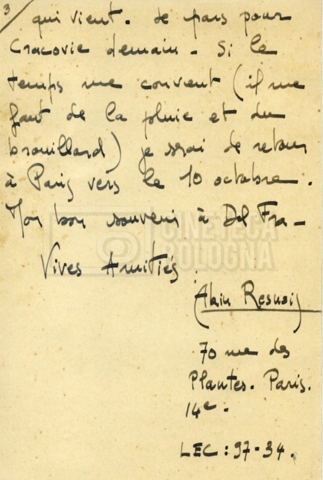 3
qui vient. Je pars pour
Cracovie demain. Si le
temps me convient (il me
faut de la pluie et du
brouillard) je serai de retour
à Paris vers le 10 octobre.
Mon bon souvenir à Del Fra-
CINETECA
BOLOGNA
Vives Amitiés.
Alain Resnais
70 rue des
Plantes. Paris.
14e.
LEC : 97-34.